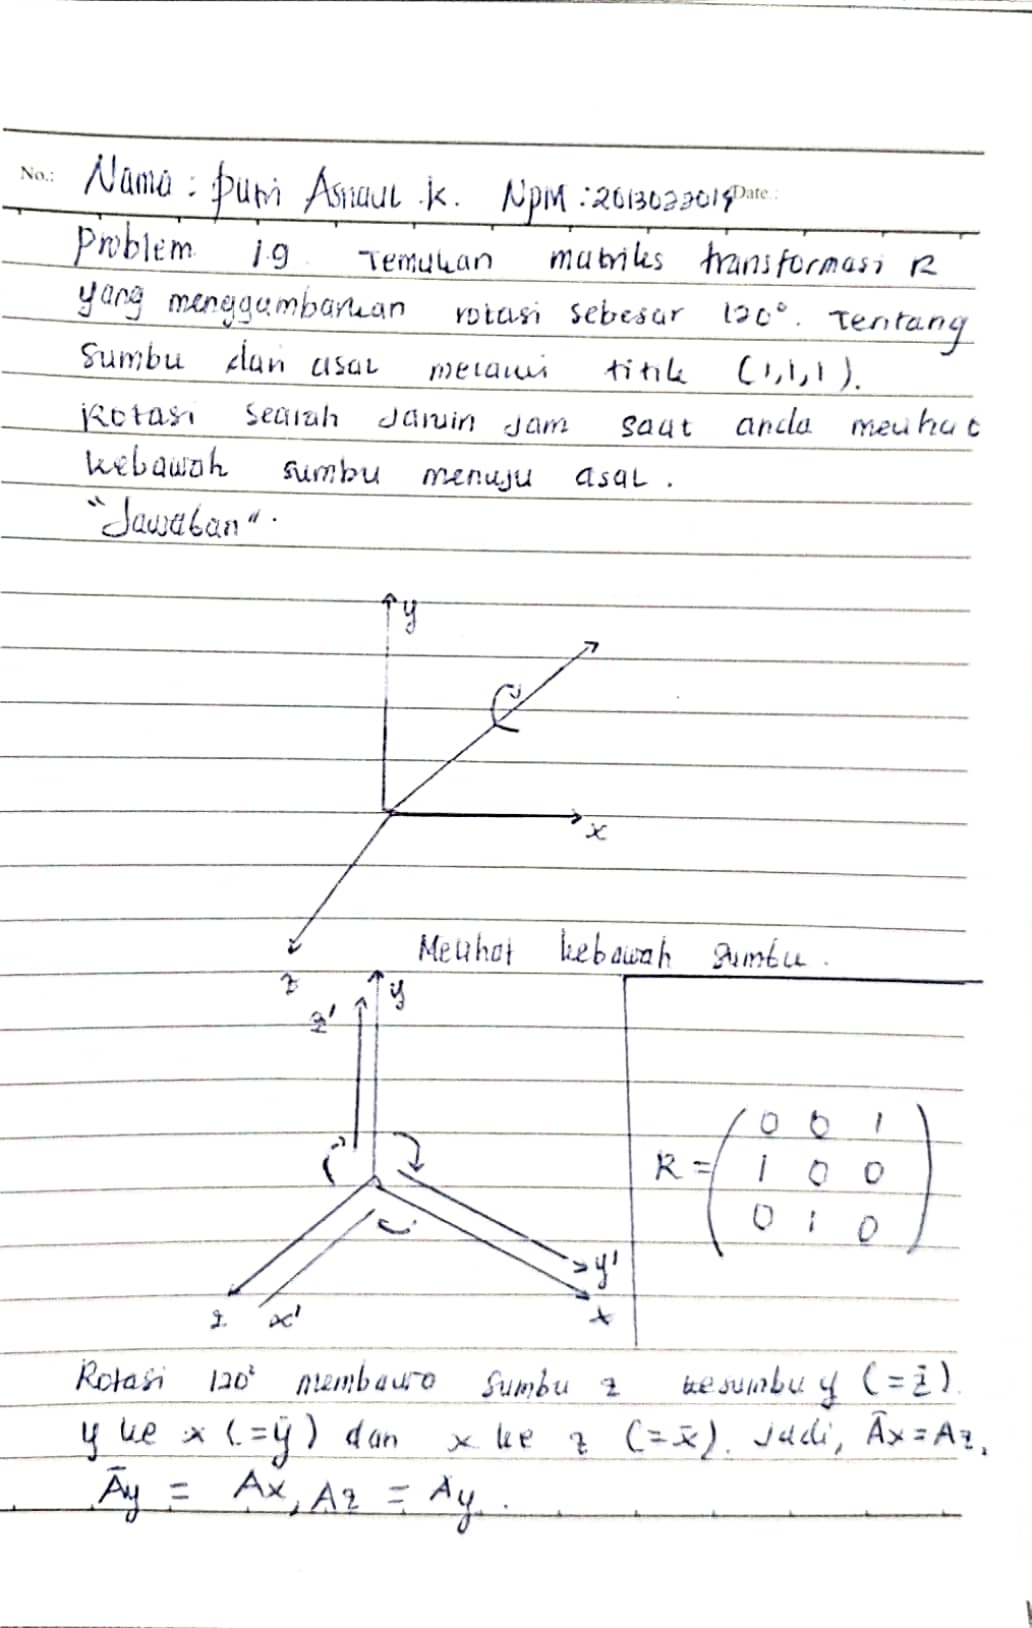 No.: Nama : Putri Asnaul .K. NPM : 2013022019 Date :
Problem 1.9 Temukan matriks transformasi R
yang menggambarkan rotasi sebesar 120°. Tentang
Sumbu dari asal melalui titik (1,1,1).
Rotasi searah jarum jam saat anda melihat
kebawah sumbu menuju asal .
"Jawaban".
y
x
z
Melihat kebawah sumbu .
y
z'
R = ( 0 0 1
1 0 0
0 1 0 )
y'
z x' x
Rotasi 120° membawa sumbu z kesumbu y (= z̄).
y ke x (= ȳ) dan x ke z (= x̄). Jadi, Āx = Az,
Āy = Ax, Az = Ay .